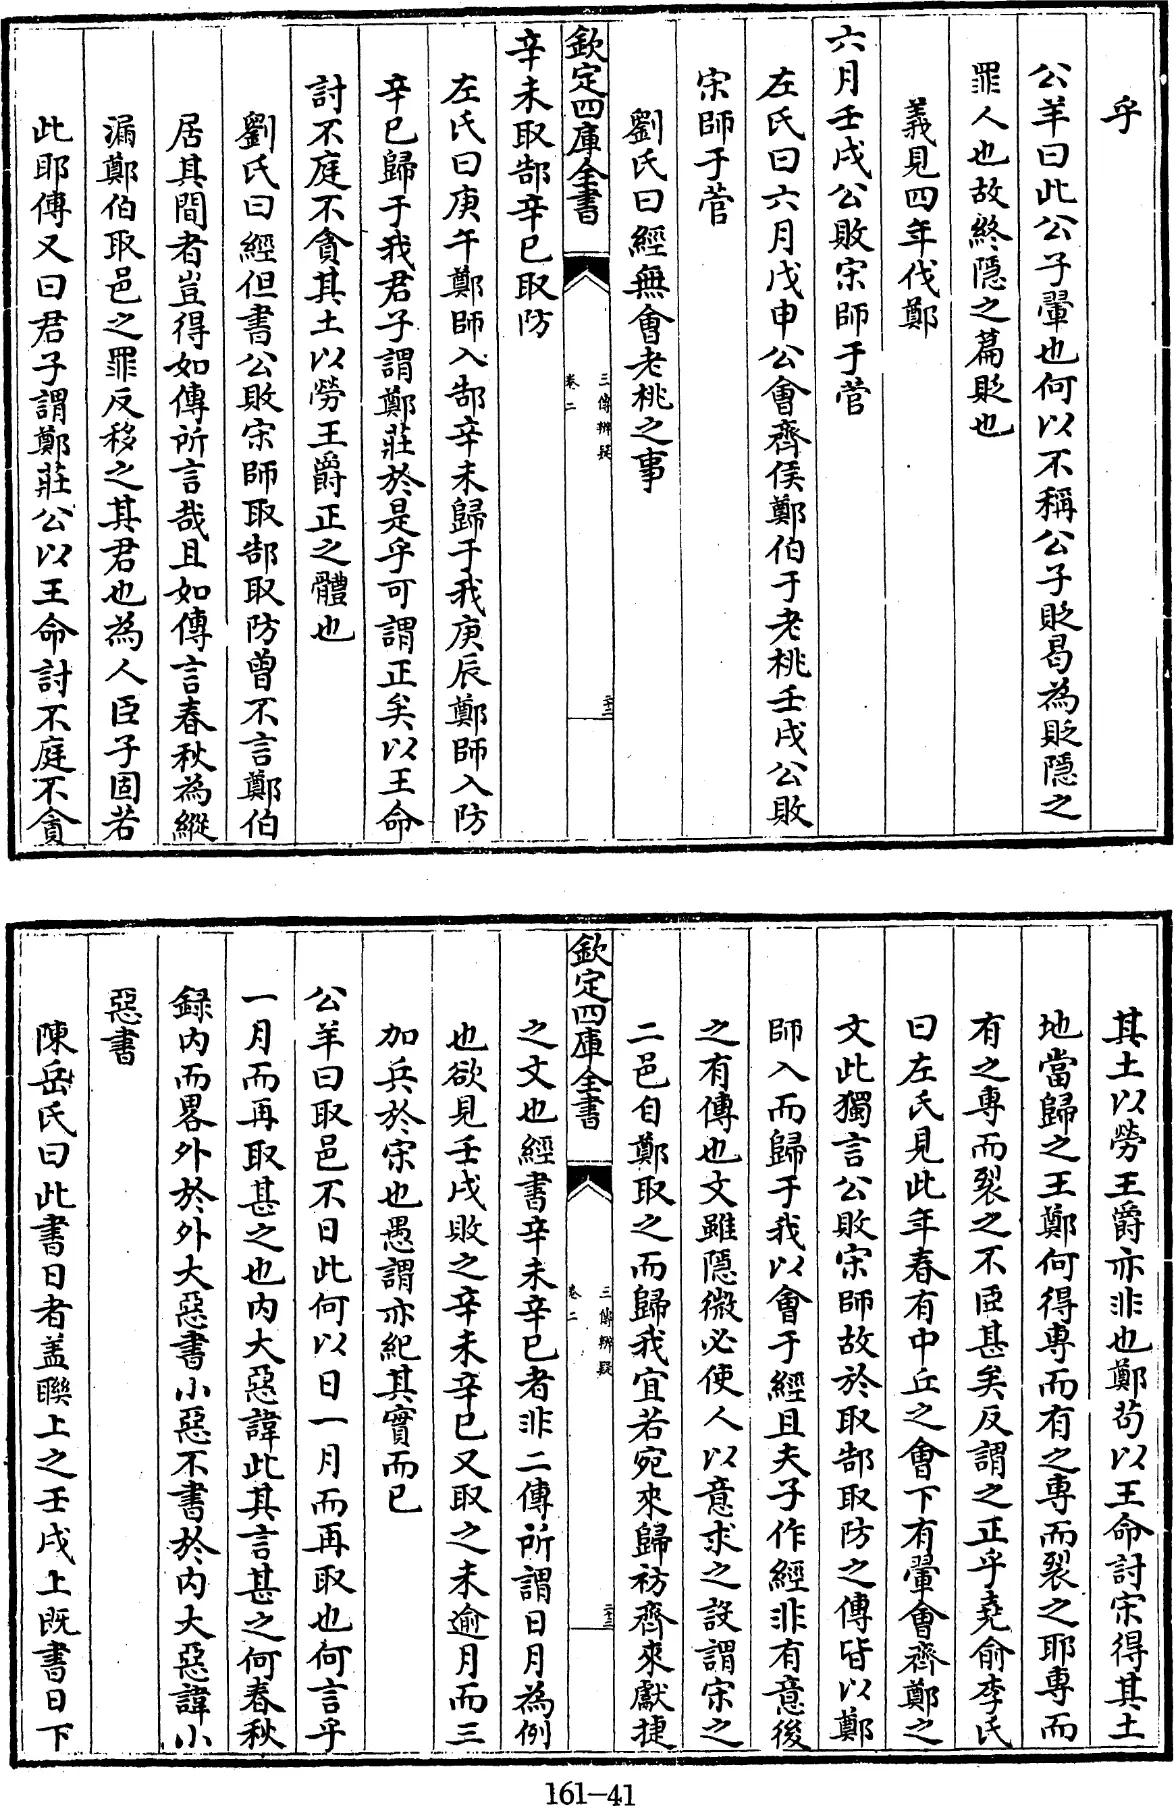 乎
公羊曰此公子翬也何以不稱公子貶曷為貶隠之
罪人也故終隠之篇貶也
義見四年伐鄭
六月壬戌公敗宋師于菅
左氏曰六月戊申公會齊侯鄭伯于老桃壬戌公敗
宋師于菅
劉氏曰經無會老桃之事
欽定四庫全書
三傳辨疑
卷二
二十二
辛未取郜辛巳取防
左氏曰庚午鄭師入郜辛未歸于我庚辰鄭師入防
辛巳歸于我君子謂鄭莊於是乎可謂正矣以王命
討不庭不貪其土以勞王爵正之體也
劉氏曰經但書公敗宋師取郜取防曾不言鄭伯
居其間者豈得如傳所言哉且如傳言春秋為縱
漏鄭伯取邑之罪反移之其君也為人臣子固若
此耶傳又曰君子謂鄭莊公以王命討不庭不貪
其土以勞王爵亦非也鄭茍以王命討宋得其土
地當歸之王鄭何得専而有之専而裂之耶専而
有之専而裂之不臣甚矣反謂之正乎堯俞李氏
曰左氏見此年春有中丘之會下有翬會齊鄭之
文此獨言公敗宋師故於取郜取防之傳皆以鄭
師入而歸于我以會于經且夫子作經非有意後
之有傳也文雖隠微必使人以意求之設謂宋之
二邑自鄭取之而歸我宜若宛來歸祊齊來獻捷
欽定四庫全書
三傳辨疑
卷二
二十三
之文也經書辛未辛巳者非二傳所謂日月為例
也欲見壬戌敗之辛未辛巳又取之未逾月而三
加兵於宋也愚謂亦紀其實而已
公羊曰取邑不日此何以日一月而再取也何言乎
一月而再取甚之也内大惡諱此其言甚之何春秋
録内而畧外於外大惡書小惡不書於内大惡諱小
惡書
陳岳氏曰此書日者盖聯上之壬戌上既書日下
161-41